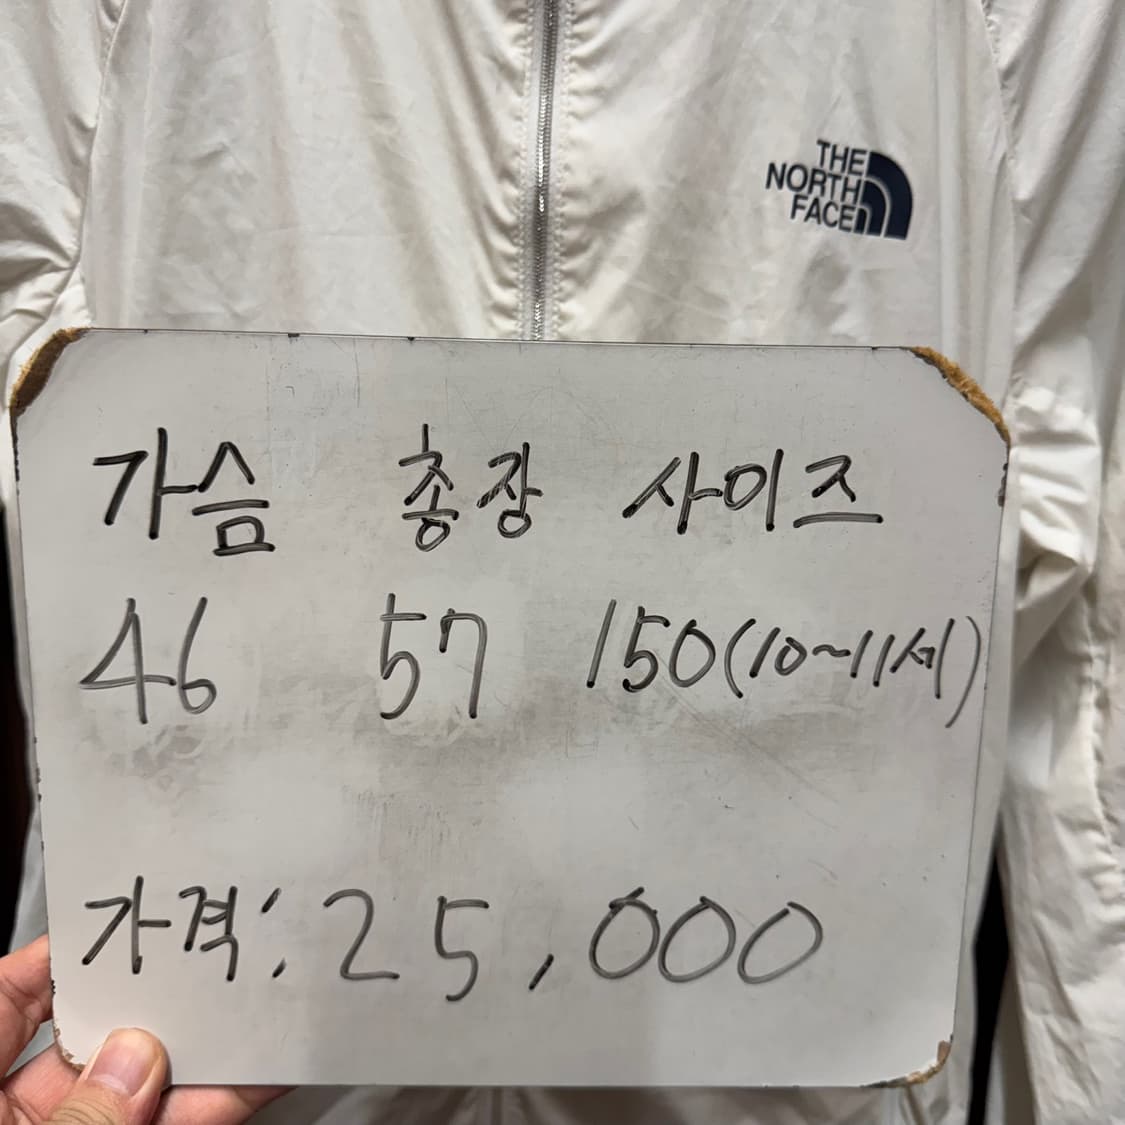 THE
NORTH
FACE
가슴 총장 사이즈
46 57 150(10~11세)
가격: 25,000